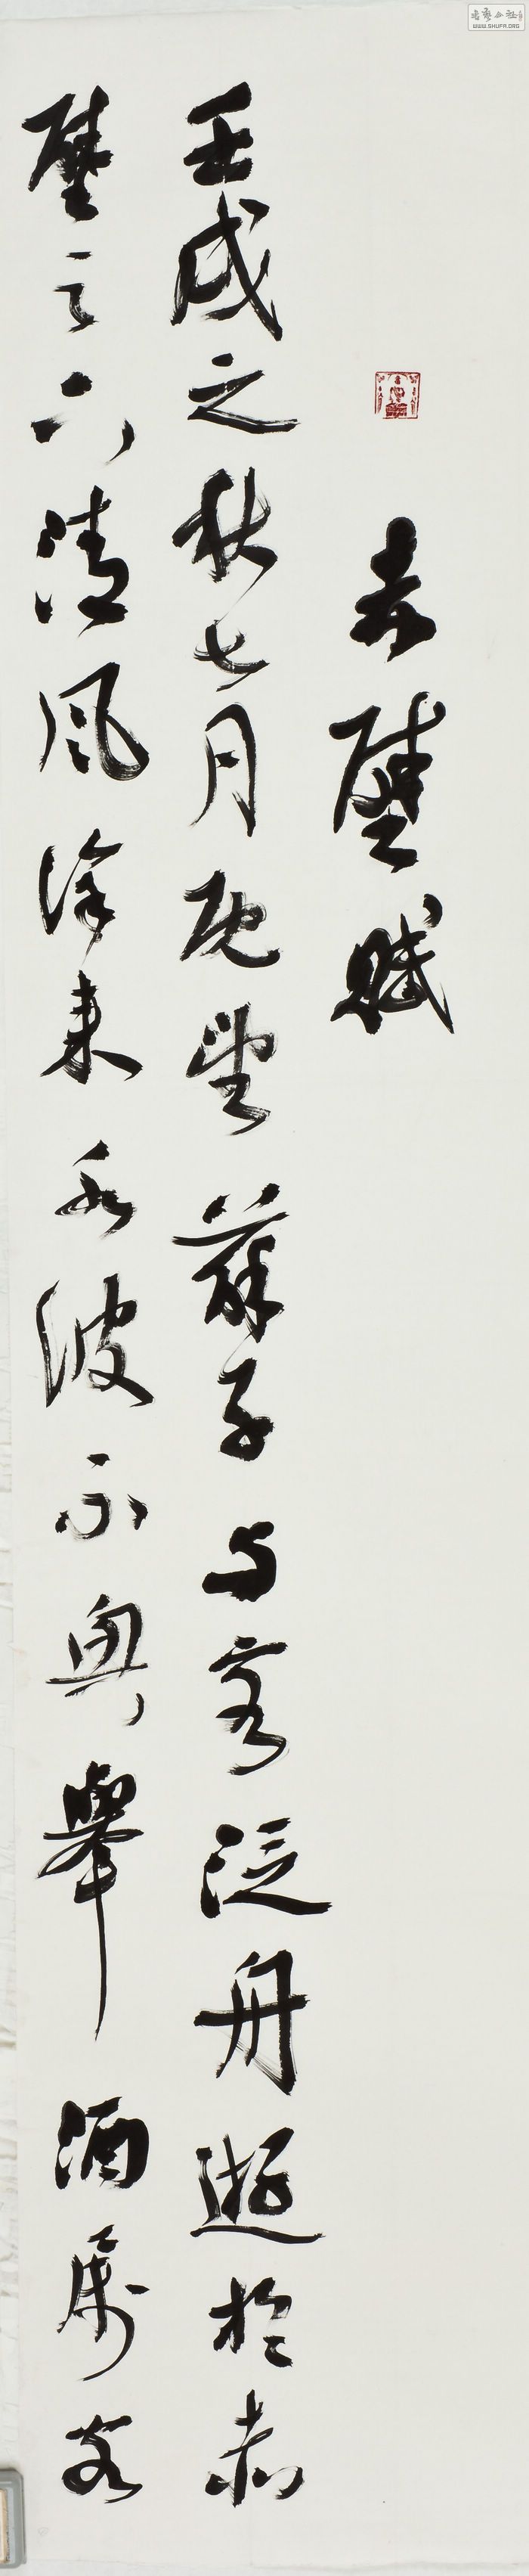 赤壁賦
壬戌之秋七月既望蘇子与客泛舟遊於赤
壁之下清風徐来水波不興舉酒属客
WWW.SHUFA.ORG